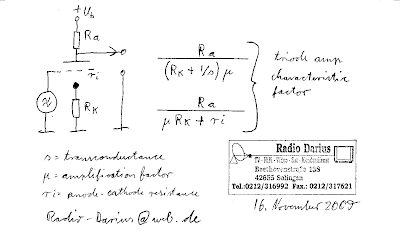 +Ub
Ra
ri
RK
Ra
(RK + 1/s) μ
Ra
μ RK + ri
triode amp
characteristic
factor
s = transconductance
μ = amplification factor
ri = anode-cathode resistance
Radio-Darius@web.de
Radio Darius
Beethovenstraße 158
42655 Solingen
Tel.:0212/316992 Fax.: 0212/317621
16. November 2009